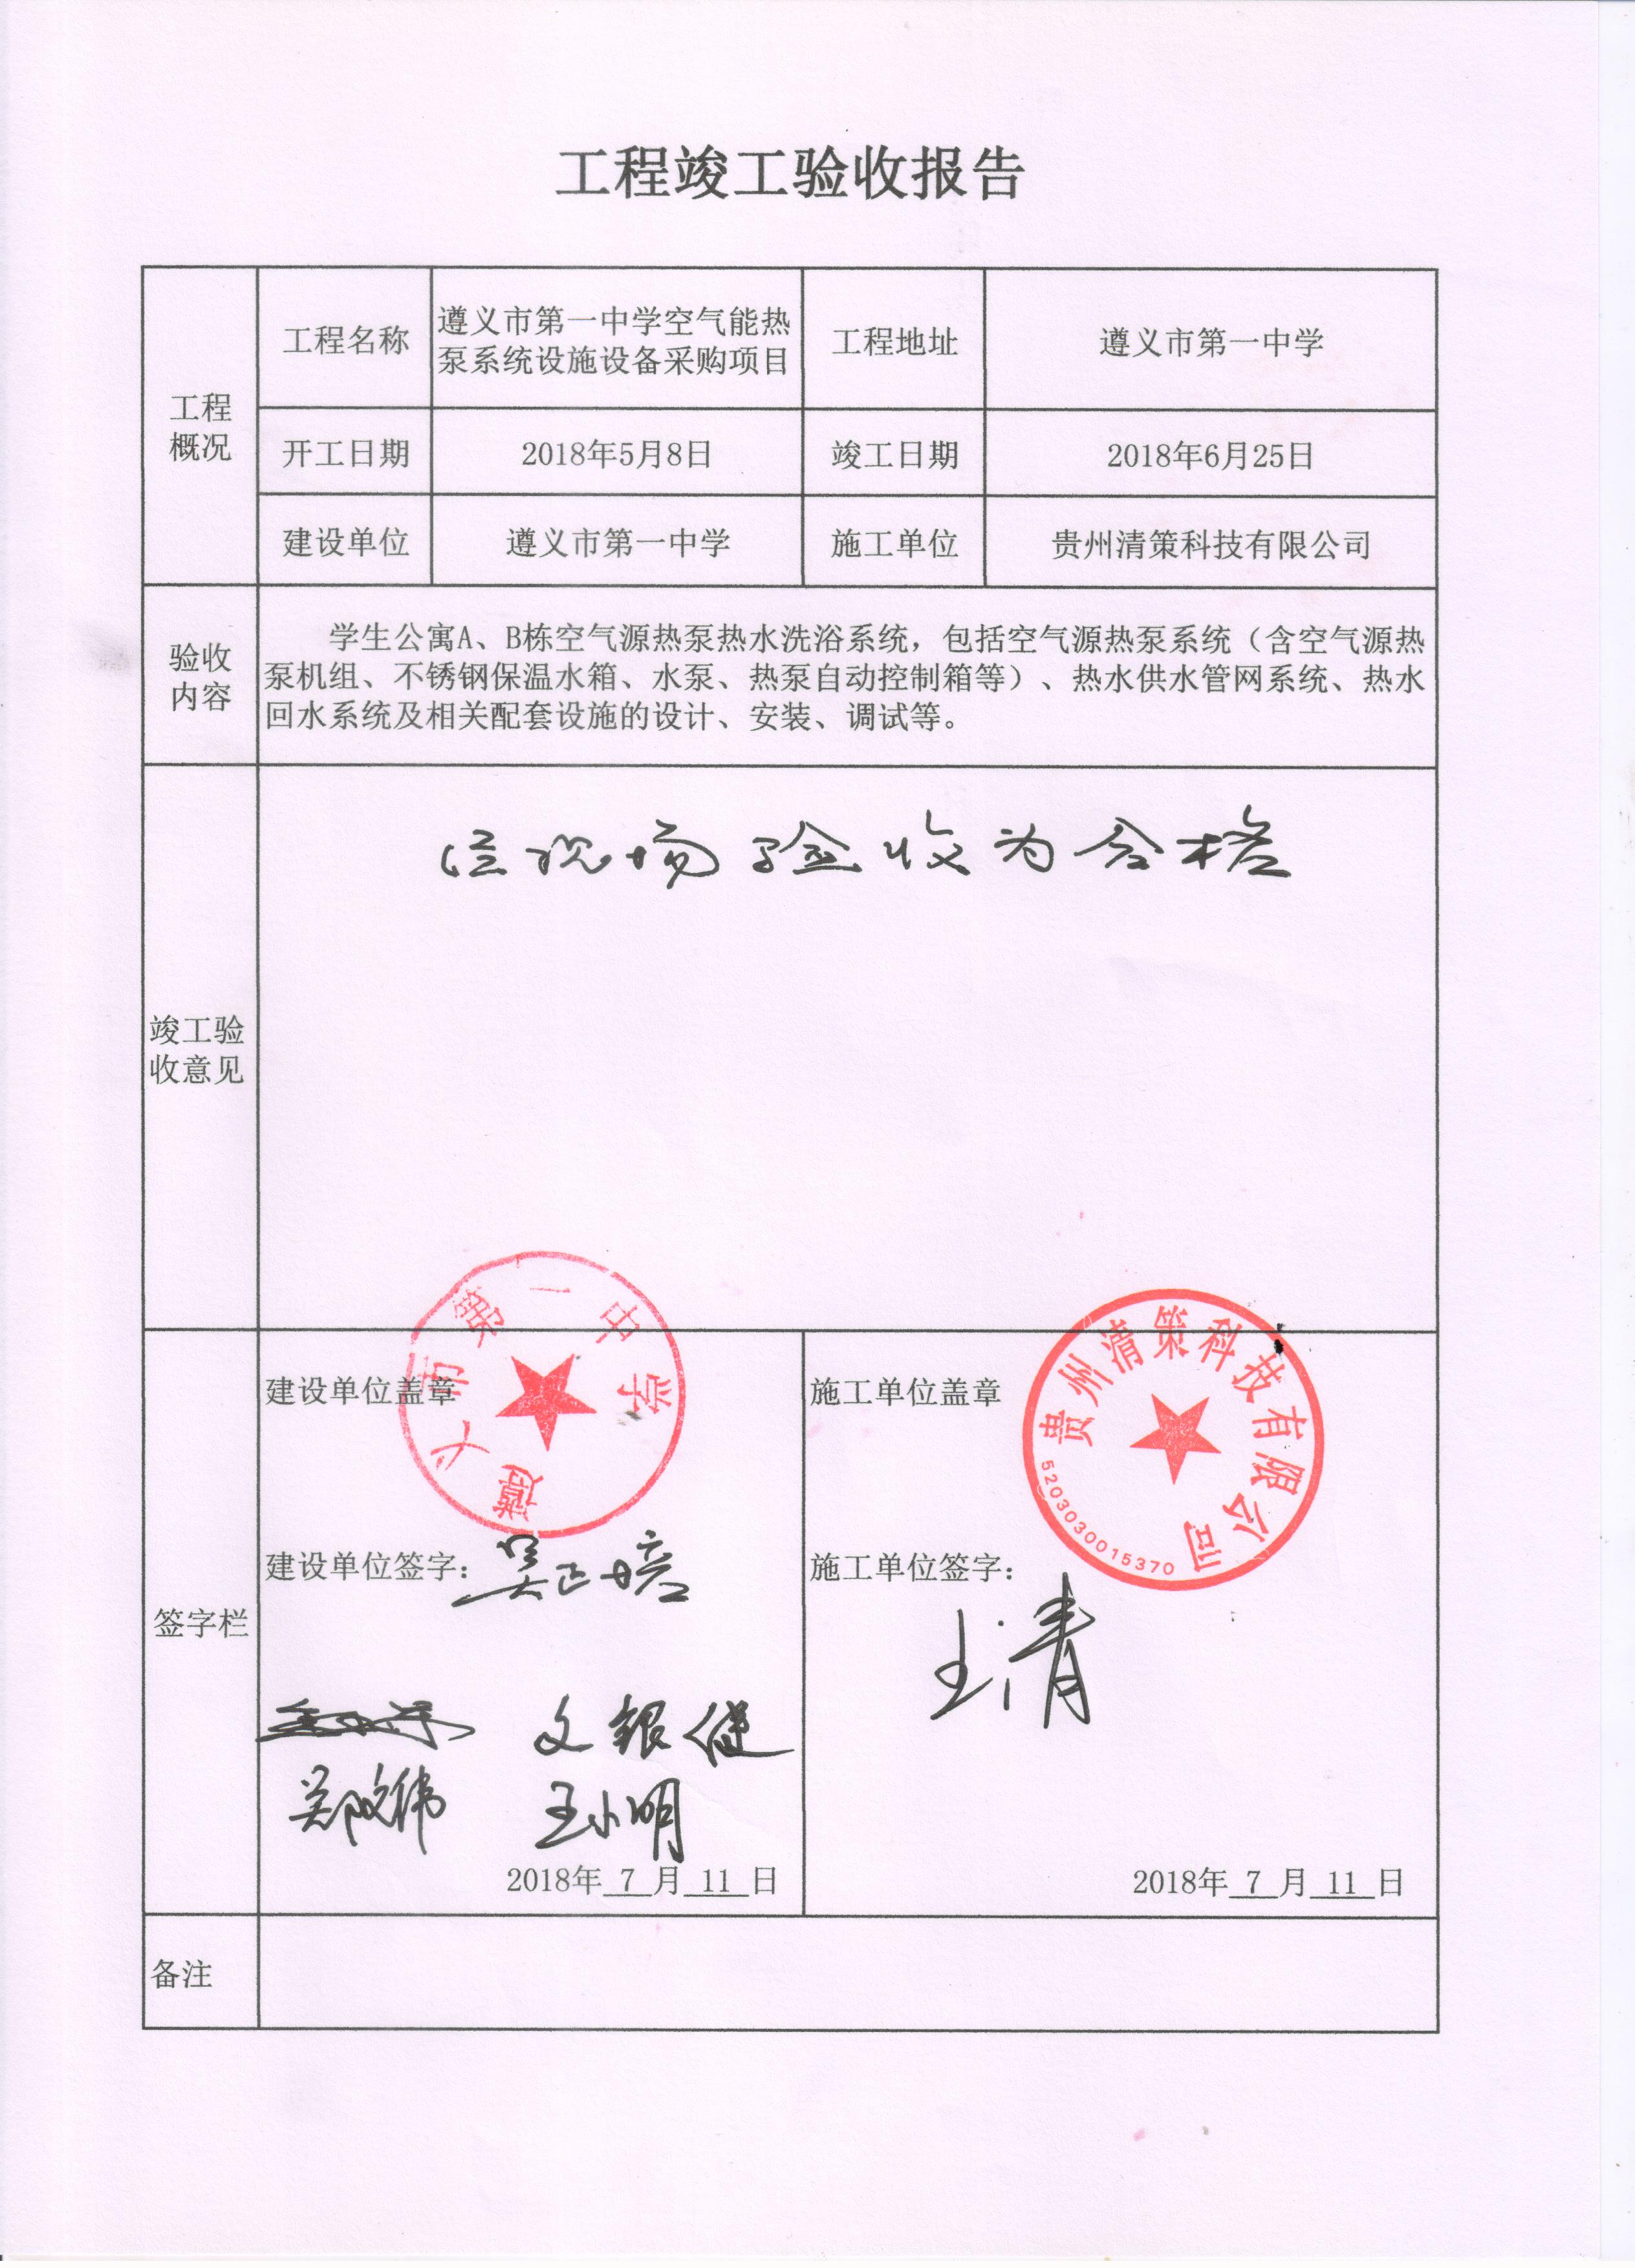 工程竣工验收报告
工程概况
工程名称
遵义市第一中学空气能热
泵系统设施设备采购项目
工程地址
遵义市第一中学
开工日期
2018年5月8日
竣工日期
2018年6月25日
建设单位
遵义市第一中学
施工单位
贵州清策科技有限公司
验收
内容
学生公寓A、B栋空气源热泵热水洗浴系统，包括空气源热泵系统（含空气源热
泵机组、不锈钢保温水箱、水泵、热泵自动控制箱等）、热水供水管网系统、热水
回水系统及相关配套设施的设计、安装、调试等。
竣工验
收意见
经现场验收为合格
签字栏
建设单位盖章
遵义市第一中学
施工单位盖章
贵州清策科技有限公司
5203030015370
建设单位签字：吴正培
施工单位签字：
王清
文银健
郑文伟
王小明
2018年 7 月 11 日
2018年 7 月 11 日
备注